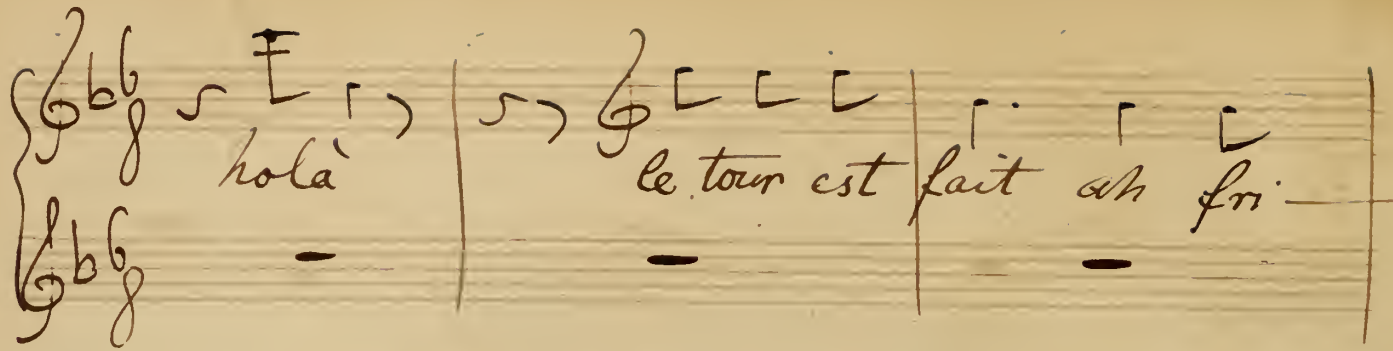 holà le tour est fait ah fri